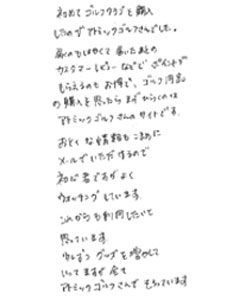 初めて ゴルフクラブを購入
したのが アトミックゴルフさんでした。
届くのもはやくて 届いたあとの
カスタマーレビューなどで ポイントが
もらえるのも お得で、ゴルフ用品
の購入を思ったら まず からくのは
アトミックゴルフさんのサイトです。
おとくな情報も こまめに
メールでいただけるので
初心者ですが よく
ウォッチングしています。
これからも利用したいと
思っています。
少しずつ グッズを増やして
いってますが 全て
アトミックゴルフさんで そろっています